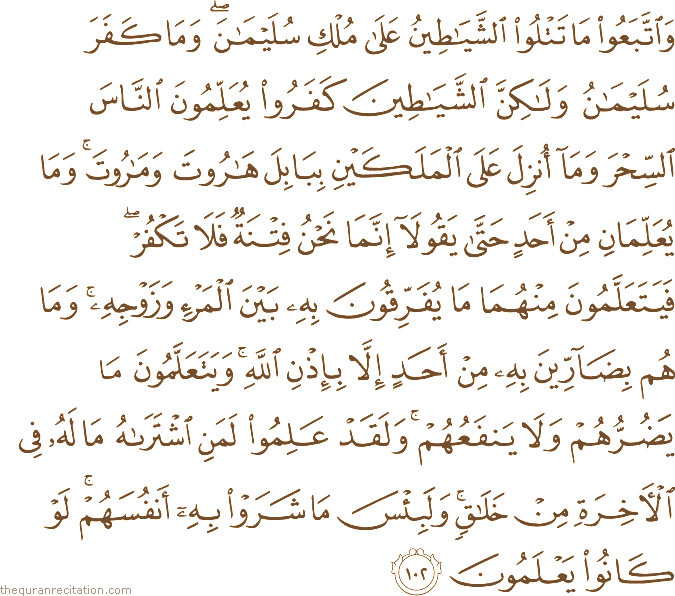 وَٱتَّبَعُوا۟ مَا تَتْلُوا۟ ٱلشَّيَـٰطِينُ عَلَىٰ مُلْكِ سُلَيْمَـٰنَ ۖ وَمَا كَفَرَ
سُلَيْمَـٰنُ وَلَـٰكِنَّ ٱلشَّيَـٰطِينَ كَفَرُوا۟ يُعَلِّمُونَ ٱلنَّاسَ
ٱلسِّحْرَ وَمَآ أُنزِلَ عَلَى ٱلْمَلَكَيْنِ بِبَابِلَ هَـٰرُوتَ وَمَـٰرُوتَ ۚ وَمَا
يُعَلِّمَانِ مِنْ أَحَدٍ حَتَّىٰ يَقُولَآ إِنَّمَا نَحْنُ فِتْنَةٌ فَلَا تَكْفُرْ ۖ
فَيَتَعَلَّمُونَ مِنْهُمَا مَا يُفَرِّقُونَ بِهِۦ بَيْنَ ٱلْمَرْءِ وَزَوْجِهِۦ ۚ وَمَا
هُم بِضَآرِّينَ بِهِۦ مِنْ أَحَدٍ إِلَّا بِإِذْنِ ٱللَّهِ ۚ وَيَتَعَلَّمُونَ مَا
يَضُرُّهُمْ وَلَا يَنفَعُهُمْ ۚ وَلَقَدْ عَلِمُوا۟ لَمَنِ ٱشْتَرَىٰهُ مَا لَهُۥ فِى
ٱلْـَٔاخِرَةِ مِنْ خَلَـٰقٍ ۚ وَلَبِئْسَ مَا شَرَوْا۟ بِهِۦٓ أَنفُسَهُمْ ۚ لَوْ
كَانُوا۟ يَعْلَمُونَ ١٠٢
thequranrecitation.com